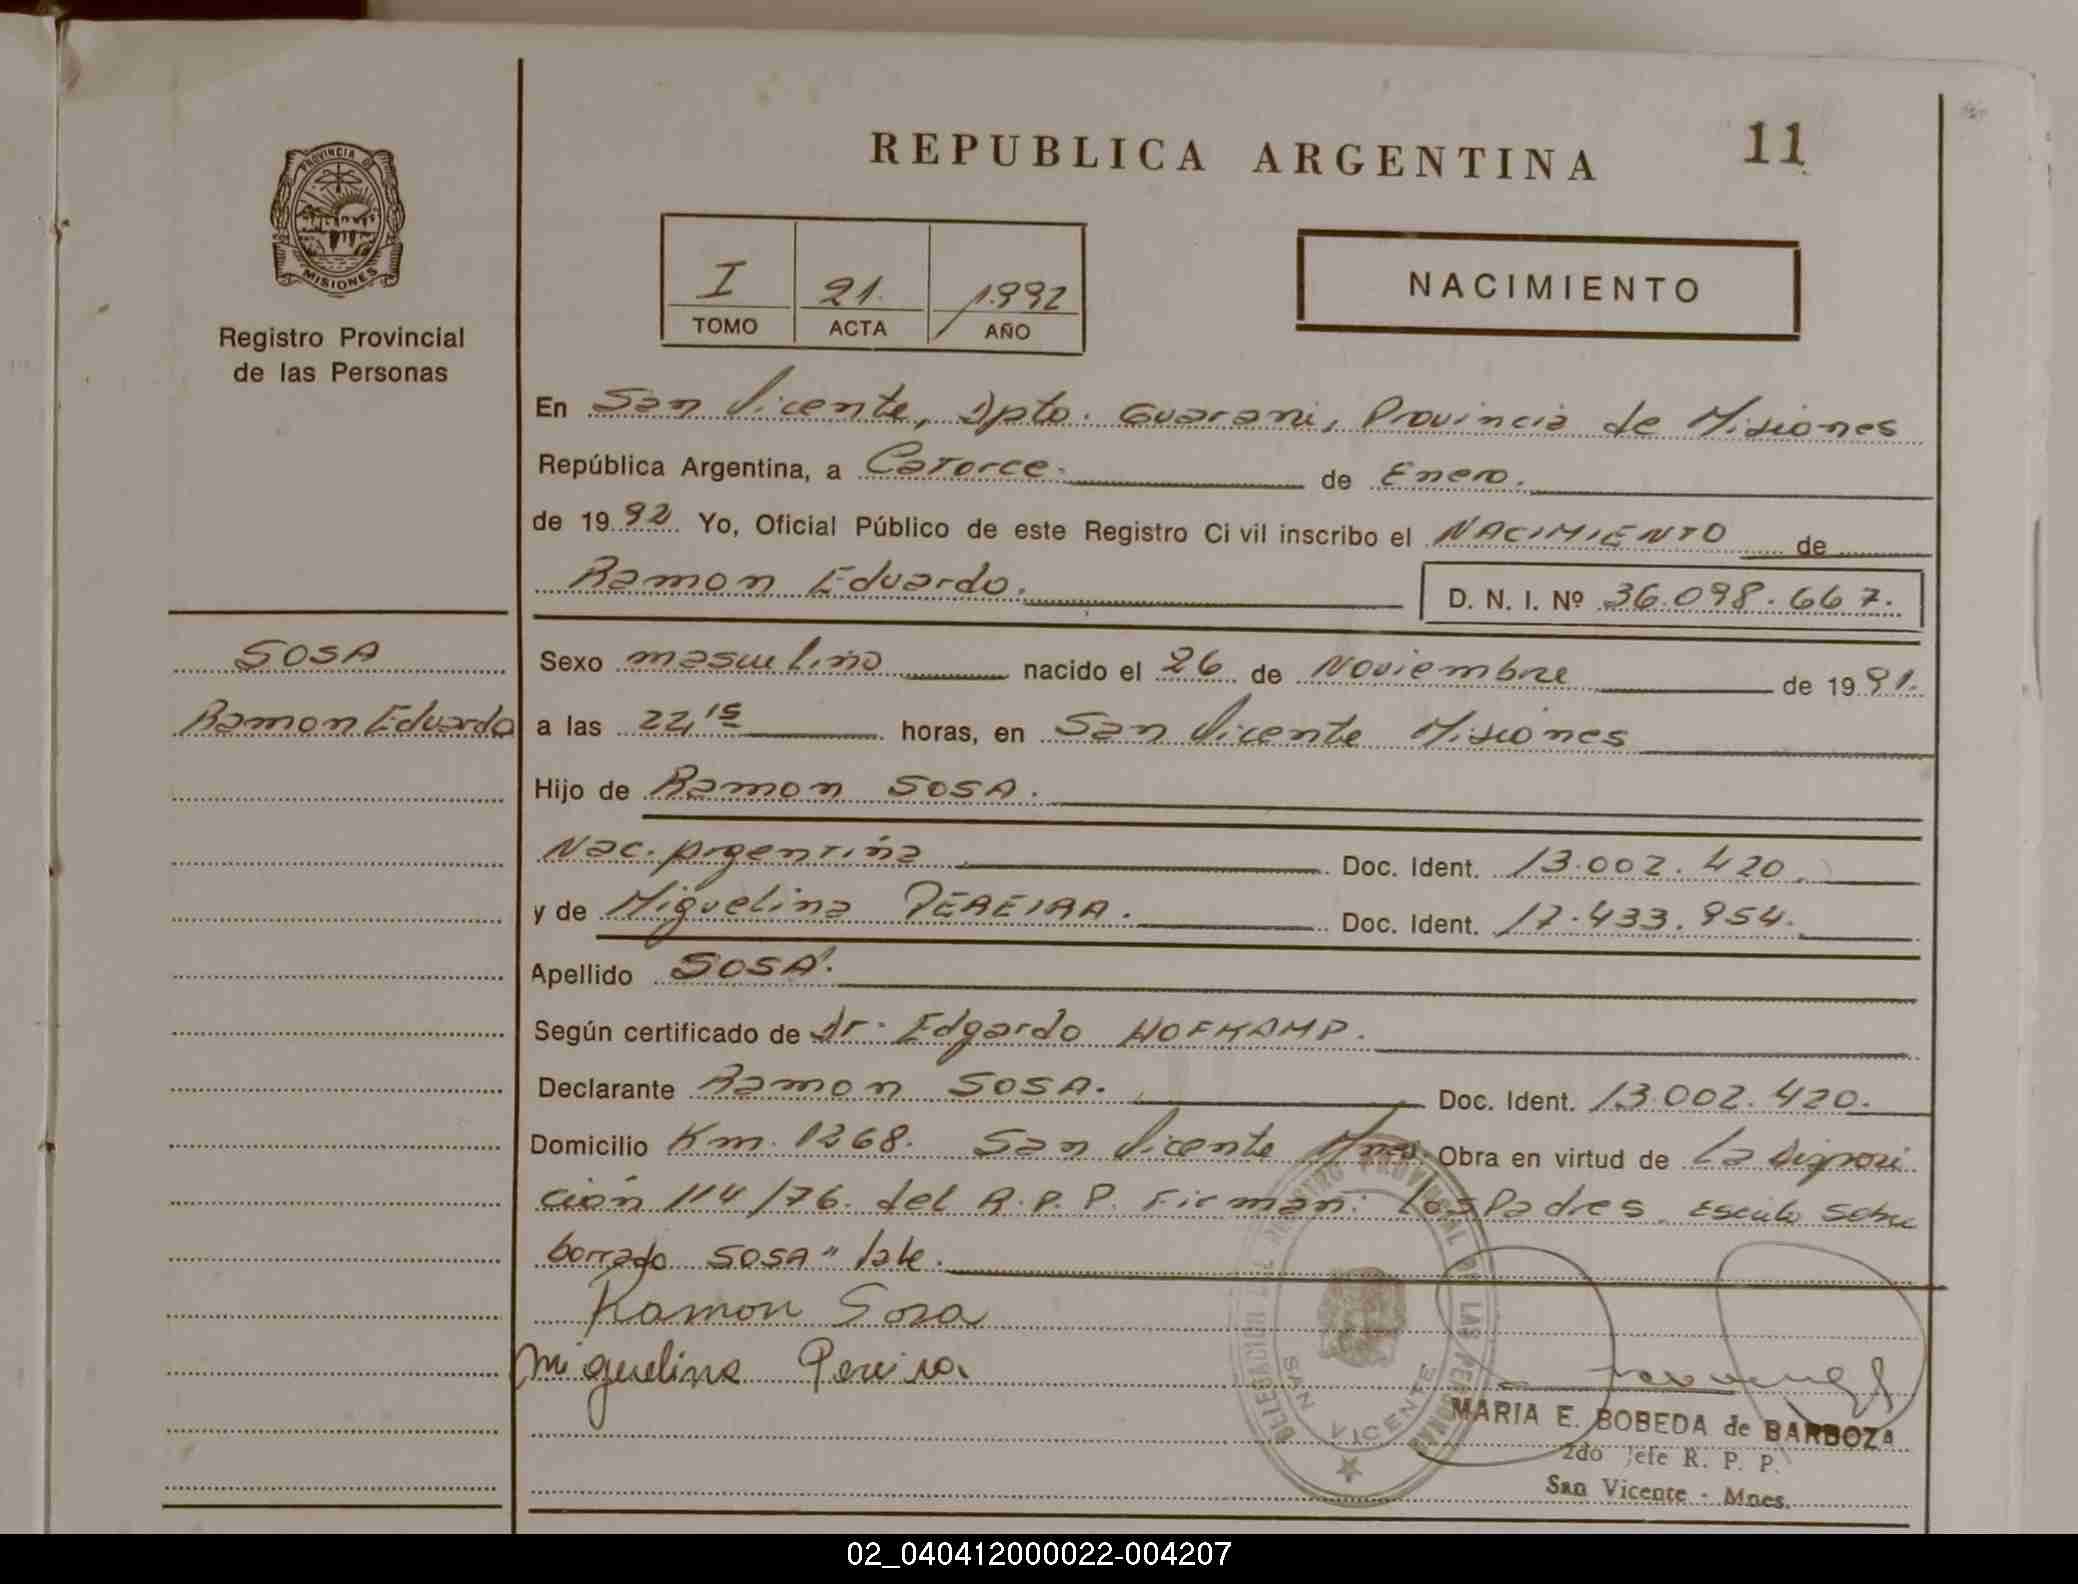 REPUBLICA ARGENTINA
11
PROVINCIA DE
MISIONES
Registro Provincial
de las Personas
I 21. 1992
TOMO ACTA AÑO
NACIMIENTO
En San Vicente, Dpto. Guarani, Provincia de Misiones
República Argentina, a Catorce. de Enero.
de 1992 Yo, Oficial Público de este Registro Civil inscribo el NACIMIENTO de
Ramon Eduardo. D. N. I. Nº 36.098.667.
SOSA
Ramon Eduardo
Sexo masculino nacido el 26 de Noviembre de 1991.
a las 22,15 horas, en San Vicente Misiones
Hijo de Ramon SOSA.
Nac. Argentina Doc. Ident. 13.002.420.
y de Miguelina PEREIRA. Doc. Ident. 17.433.954.
Apellido SOSA.
Según certificado de Dr. Edgardo HOFKAMP.
Declarante Ramon SOSA. Doc. Ident. 13.002.420.
Domicilio Km. 1268. San Vicente Mnes. Obra en virtud de La Disposi
ción 114/76. del R.P.P. Firman: Los Padres. Escrito sobre
borrado SOSA" Vale.
Ramon Sosa
Miguelina Pereira
DELEGACION DEL REGISTRO PROVINCIAL DE LAS PERSONAS
SAN VICENTE
MARIA E. BOBEDA de BARBOZA
2do Jefe R. P. P.
San Vicente - Mnes.
02_040412000022-004207